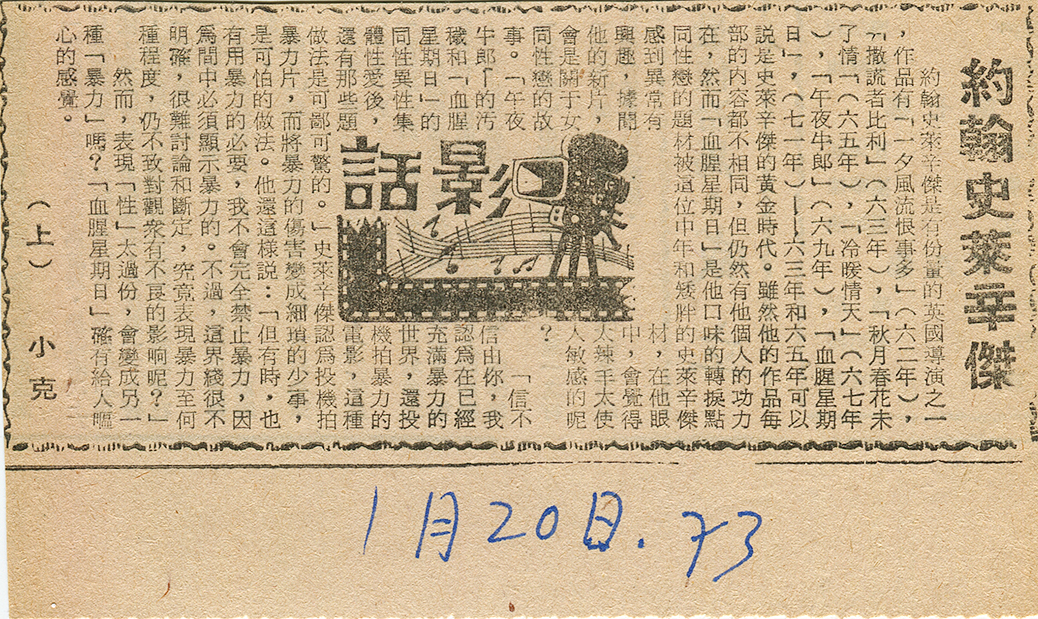 約翰史萊辛傑
約翰史萊辛傑是有份量的英國導演之一
,作品有「一夕風流恨事多」(六二年),
「撒謊者比利」(六三年),「秋月春花未
了情」(六五年),「冷暖情天」(六七年
),「午夜牛郎」(六九年),「血腥星期
日」,(七一年)——六三年和六五年可以
說是史萊辛傑的黃金時代。雖然他的作品每
部的內容都不相同,但仍然有他個人的功力
在,然而「血腥星期日」是他口味的轉捩點
同性戀的題材被這位中年和矮胖的史萊辛傑
感到異常有
興趣,據聞
他的新片,
會是關于女
同性戀的故
事。「午夜
牛郎」的污
穢和「血腥
星期日」的
同性異性集
體性愛後,
還有那些題
影話
材,在他眼
中,會覺得
太辣手太使
人敏感的呢
?
「信不
信由你,我
認爲在已經
充滿暴力的
世界,還投
機拍暴力的
電影,這種
做法是可鄙可驚的。」史萊辛傑認爲投機拍
暴力片,而將暴力的傷害變成細瑣的少事,
是可怕的做法。他還這樣說:「但有時,也
有用暴力的必要,我不會完全禁止暴力,因
爲間中必須顯示暴力的。不過,這界綫很不
明確,很難討論和斷定,究竟表現暴力至何
種程度,仍不致對觀衆有不良的影响呢?」
然而,表現「性」太過份,會變成另一
種「暴力」嗎?「血腥星期日」確有給人嘔
心的感覺。
(上) 小克
1月20日.73